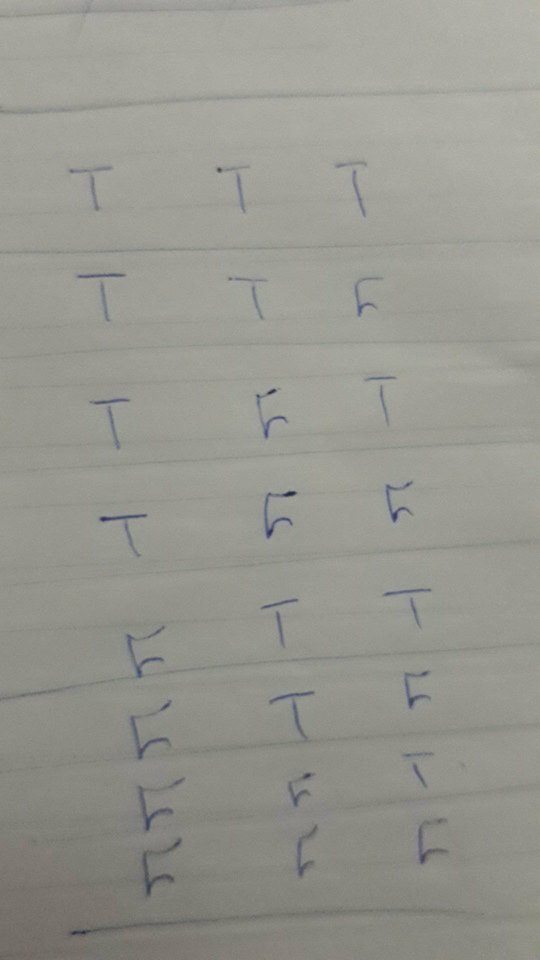 T T T
T T F
T F T
T F F
F T T
F T F
F F T
F F F